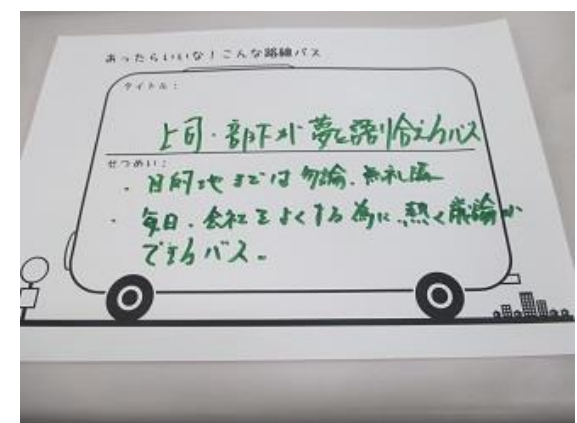 あったらいいな！こんな路線バス
タイトル：
上司・部下が夢を語り合えるバス
せつめい：
・目的地までは勿論、無礼講
・毎日、会社をよくする為に、熱く議論が
できるバス。